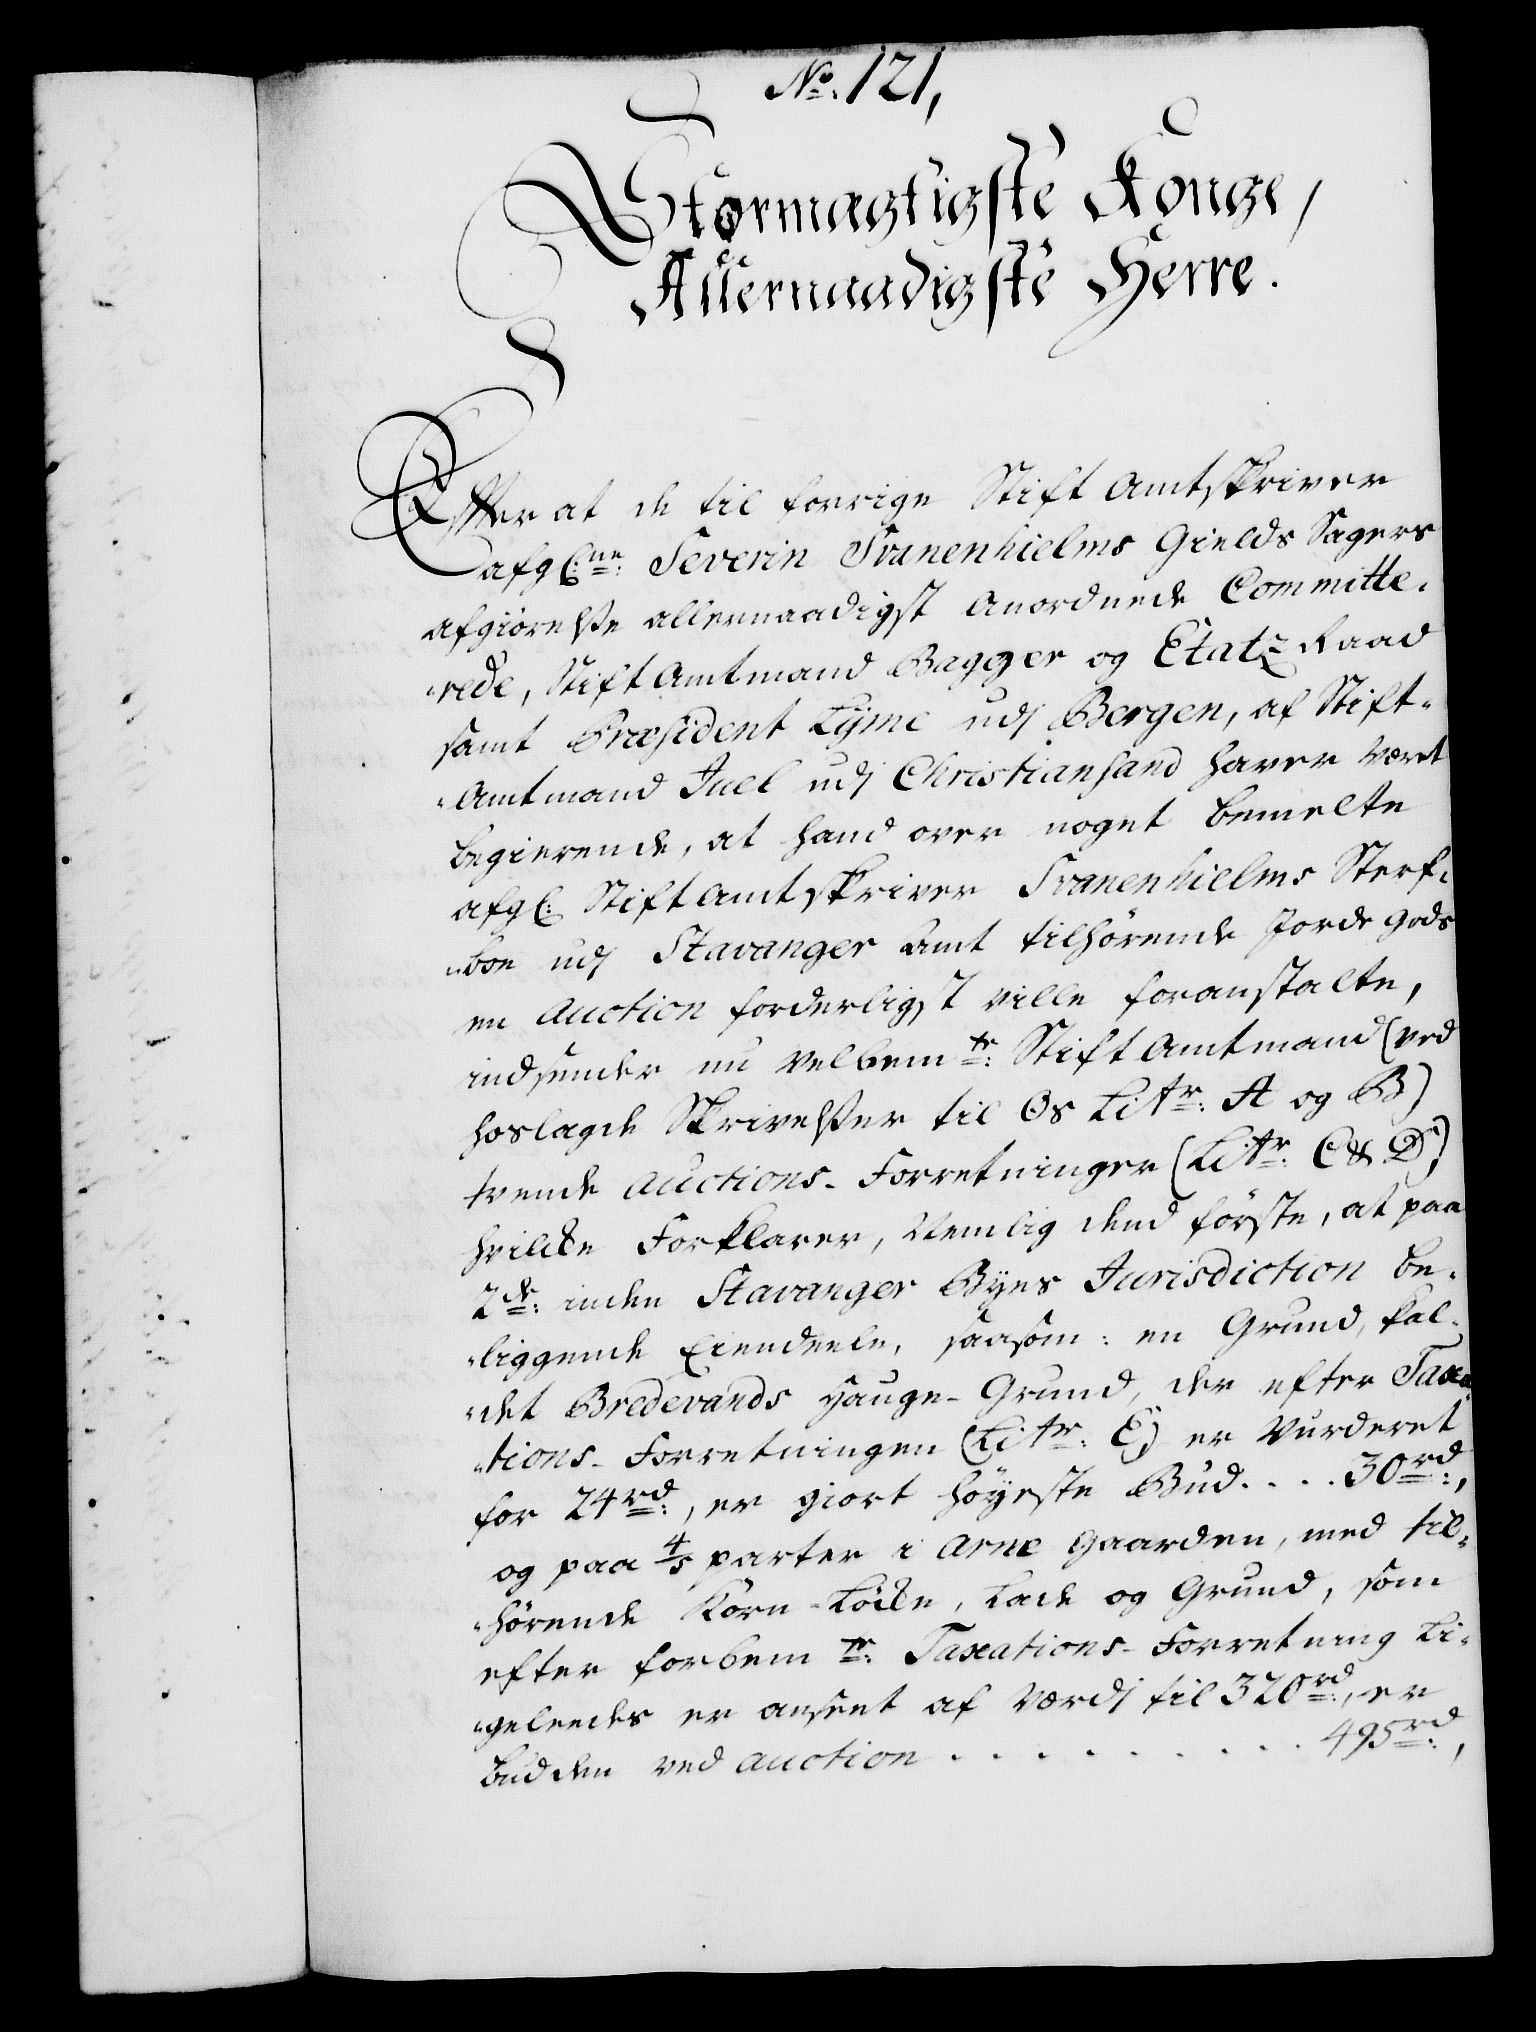 No. 121,
Stormagtigste Konge,
Allernaadigste Herre.
Efter at de til forrige Stift Amtskriver
afgl:ne: Severin Svanenhielms Gields Sagers
afgiörelse allernaadigst anordnede Committe-
rede, Stift Amtmand Bagger og Etatz Raad
samt Præsident Lyme udj Bergen, af Stift-
Amtmand Juel udj Christiansand haver været
begierende, at hand over noget bemelte
afgl: Stift Amtskriver Svanenhielms Sterf-
boe udj Stavanger Amt tilhörende Jorde gods
en Auction forderligst ville foranstalte,
indsender nu velbemte: Stift Amtmand (ved
hoslagde Skrivelser til Os Litr: A og B)
tvende Auctions-Forretninger (Litr: C & D,)
hvilke Forklarer, Nemlig dend förste, at paa
2de: inden Stavanger Byes Jurisdiction be-
liggende Eiendeele, saasom: en Grund, kal-
det Bredevands Hauge-Grund, der efter Taxa-
tions-Forretningen (Litr: E,) er Vurderet
for 24rd:, er giort höyeste Bud.... 30rd:,
og paa 4/5 parter i Arne Gaarden, med til-
hörende Korn-Löcke, Lade og Grund, som
efter forbemte: Taxations-Forretning Li-
geleedes er anseet af Værdj til 320rd:, er
budden ved Auction.......... 495rd:,